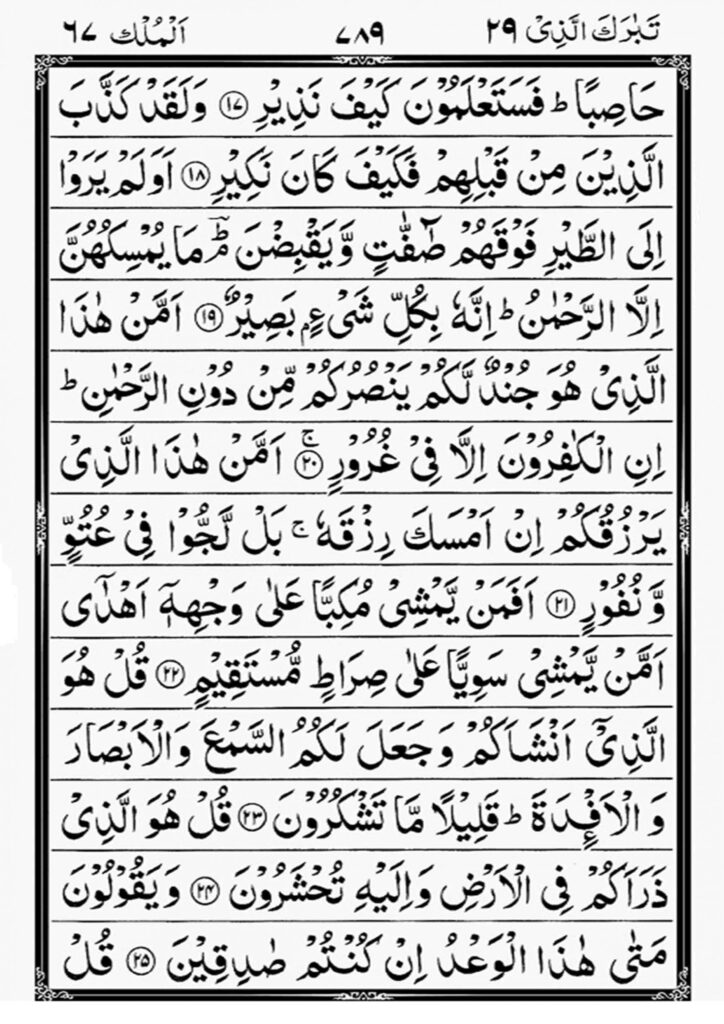 تَبٰرَكَ الَّذِیْ ٢٩ ٧٨٩ اَلْمُلْك ٦٧
حَاصِبًا ؕ فَسَتَعْلَمُوْنَ كَیْفَ نَذِیْرِ ﴿١٧﴾ وَلَقَدْ كَذَّبَ
الَّذِیْنَ مِنْ قَبْلِهِمْ فَكَیْفَ كَانَ نَكِیْرِ ﴿١٨﴾ اَوَلَمْ یَرَوْا
اِلَی الطَّیْرِ فَوْقَهُمْ صٰٓفّٰتٍ وَّیَقْبِضْنَ ؔؕ مَا یُمْسِكُهُنَّ
اِلَّا الرَّحْمٰنُ ؕ اِنَّهٗ بِكُلِّ شَیْءٍۭ بَصِیْرٌ ﴿١٩﴾ اَمَّنْ هٰذَا
الَّذِیْ هُوَ جُنْدٌ لَّكُمْ یَنْصُرُكُمْ مِّنْ دُوْنِ الرَّحْمٰنِ ؕ
اِنِ الْكٰفِرُوْنَ اِلَّا فِیْ غُرُوْرٍ ۚ﴿٢٠﴾ اَمَّنْ هٰذَا الَّذِیْ
یَرْزُقُكُمْ اِنْ اَمْسَكَ رِزْقَهٗ ۚ بَلْ لَّجُّوْا فِیْ عُتُوٍّ
وَّنُفُوْرٍ ﴿٢١﴾ اَفَمَنْ یَّمْشِیْ مُكِبًّا عَلٰی وَجْهِهٖۤ اَهْدٰۤی
اَمَّنْ یَّمْشِیْ سَوِیًّا عَلٰی صِرَاطٍ مُّسْتَقِیْمٍ ﴿٢٢﴾ قُلْ هُوَ
الَّذِیْۤ اَنْشَاَكُمْ وَجَعَلَ لَكُمُ السَّمْعَ وَالْاَبْصَارَ
وَالْاَفْـِٕدَةَ ؕ قَلِیْلًا مَّا تَشْكُرُوْنَ ﴿٢٣﴾ قُلْ هُوَ الَّذِیْ
ذَرَاَكُمْ فِی الْاَرْضِ وَاِلَیْهِ تُحْشَرُوْنَ ﴿٢٤﴾ وَیَقُوْلُوْنَ
مَتٰی هٰذَا الْوَعْدُ اِنْ كُنْتُمْ صٰدِقِیْنَ ﴿٢٥﴾ قُلْ